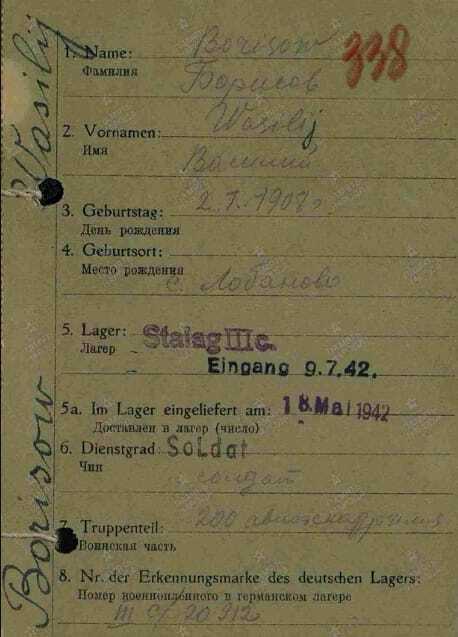 Borisow Wasilij
338
1. Name: Borisow
Фамилия Борисов
2. Vornamen: Wasilij
Имя Василий
3. Geburtstag:
День рождения
4. Geburtsort:
Место рождения с. Лобаново
5. Lager: Stalag III c.
Лагер
Eingang 9.7.42.
5a. Im Lager eingeliefert am: 18. Mai 1942
Доставлен в лагер (число)
6. Dienstgrad: Soldat
Чин солдат
7. Truppenteil: 200
Воинская часть
8. Nr. der Erkennungsmarke des deutschen Lagers:
Номер военнопленного в германском лагере
III C/20912